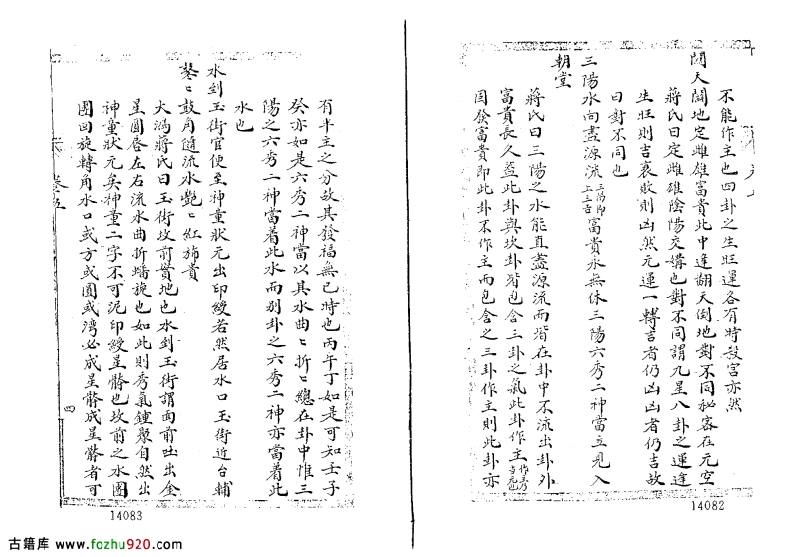 不能作主也四卦之生旺運各有時殺宮亦然
關天關地定雌雄富貴此中逢翻天倒地對不同秘密在元空
蔣氏曰定雌雄陰陽交媾也對不同謂九星八卦之運逢
生旺則吉衰敗則凶然元運一轉吉者仍凶凶者仍吉故
曰對不同也
三陽水向盡源流富貴永無休三陽六秀二神當立見入
朝堂
蔣氏曰三陽之水能直盡源流而皆在卦中不流出卦外
富貴長久蓋此卦與坎卦皆包含三卦之氣此卦作主
固發富貴即此卦不作主而包含之三卦作主則此卦亦
14082
有半主之分故其發福無已時也丙午丁如是可知壬子
癸亦如是六秀二神當以其水曲曲折折總在卦中惟三
陽之六秀二神當着此水而別卦之六秀二神亦當着此
水也
水到玉街官便至神童狀元出印綬若然居水口玉街近台輔
鼕鼕鼓角隨流水艷艷紅旆貴
大鴻蔣氏曰玉街坟前實地也水到玉街謂面前吐出金
星圓唇左右流水曲折蟠旋也如此則秀氣鍾聚自然出
神童狀元矣神童二字不可泥印綬星骼也坟前之水團
團回旋轉角水口或方或圓或灣必成星骼成星骼者可
卷五
四
14083
古籍库 www.fozhu920.com